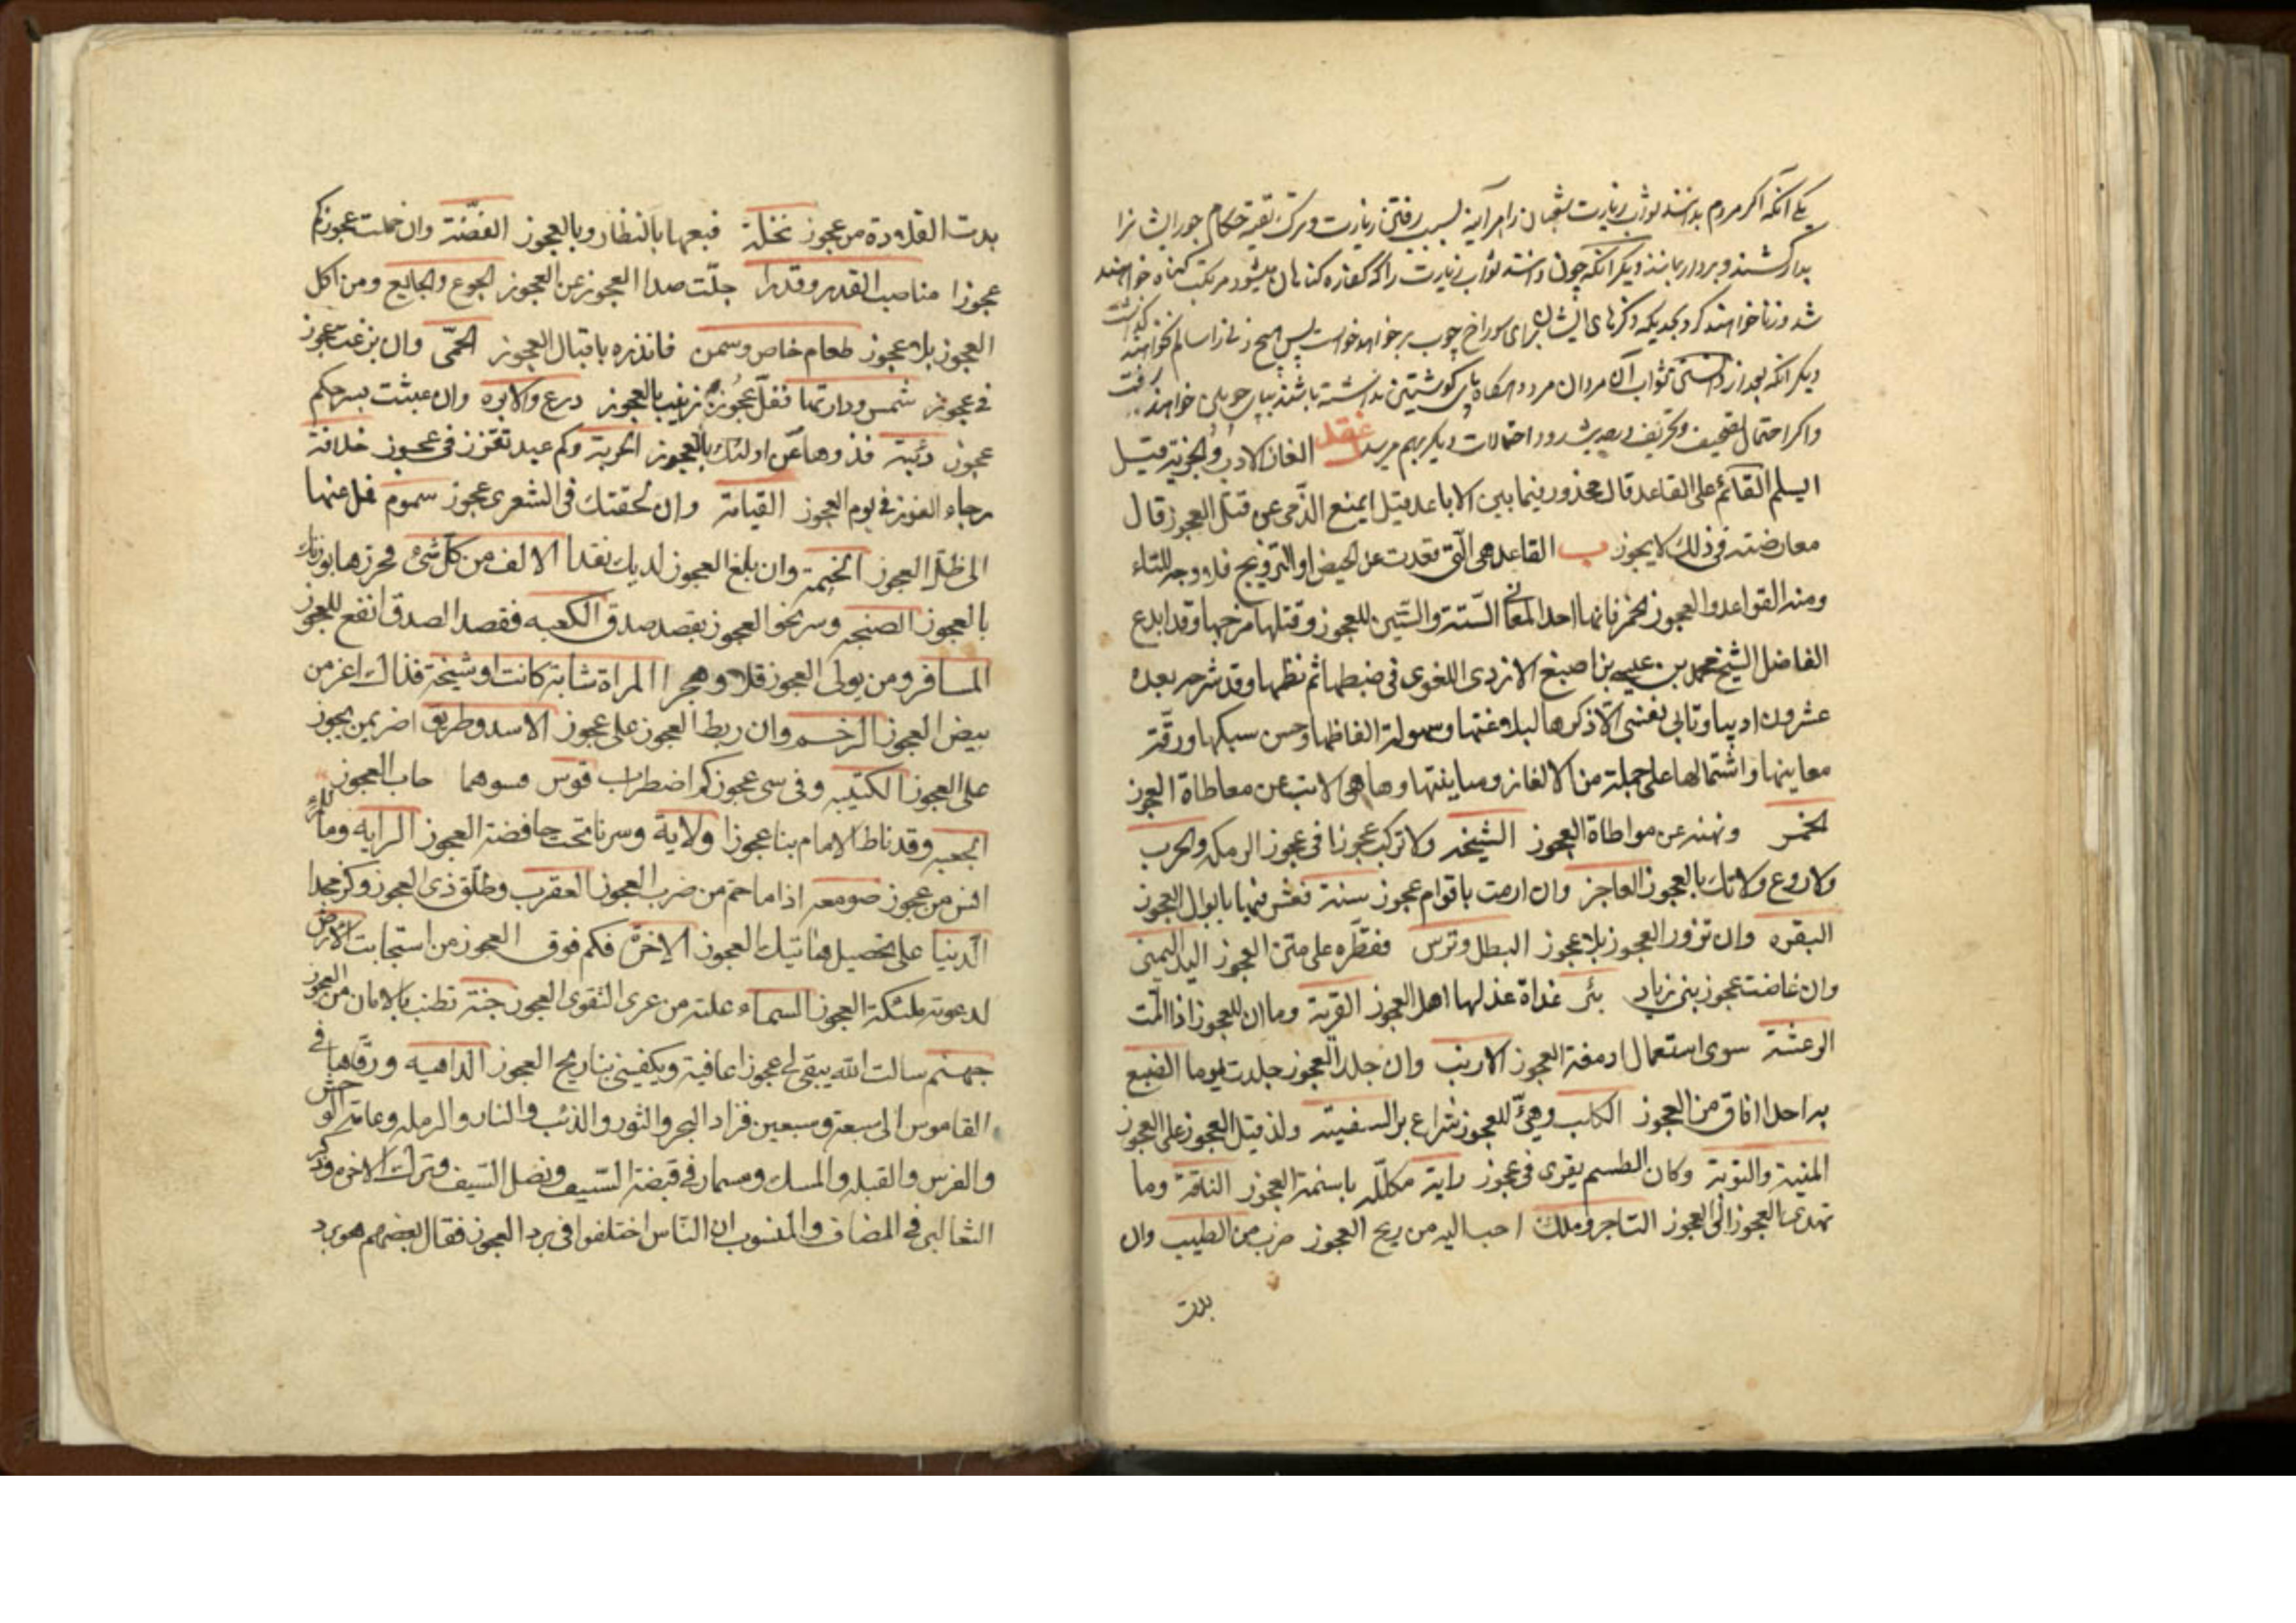 یکی آنکه اکر مردم بدانند ثواب زیارت شعبان را هرآینه بسبب رفتن زیارت و ترک تقیه حکام جور ایشانرا
بدار کشند و بردار بمانند دیکر آنکه چون دانستند ثواب زیارت را که کفاره کناهان میشود مرتکب کناه خواهند
شد و زنا خواهند کرد برای سوراخ چوب بر خواهد خواست پس هیچ زنی را سالم نخواهند کذاشت
دیکر آنکه بعد از دانستن ثواب آن مردان مرد و هرکاه پای کوشتین نداشته باشند بپای چوبین خواهند رفت
واکر احتمال تصحیف و تحریف احتمالات دیکر بهم میرسد عقد الغاز الادب والحزیة قیل
ایسلم القائم علی القاعد قال محذور فیما بین الاباعد قیل ایمنع الذمی عن قتل العجوز قال
معارضته فی ذلک لا یجوز ب القاعد هی التی تعدت عن الحیض او التزویج فلا وجه للتاء
ومنه القواعد والعجوز الخمر فانها احد المعانی الستة والستین للعجوز وقتلها مزجها وقد ابدع
الفاضل الشیخ محمد بن عیسی بن اصبغ الازدی اللغوی فی ضبطها ثم نظمها وقد شرحه بعده
عشرون ادیبا وتابی نفسی الا ذکرها لبلاغتها وسهولة الفاظها وحسن سبکها ورقة
معانیها واشتمالها علی جملة من الالغاز ومباینتها وها هی لا تب عن معاطاة العجوز
الخمر ونهنه عن مواطاة العجوز الشیخة ولا ترکب عجوزا فی عجوز الرمکة والحرب
ولا روع ولا تک بالعجوز العاجز وان ارمت باقوام عجوز سنة فعش فیها بابوال العجوز
البقره وان تزور العجوز بلا عجوز البطل وترس ففطره علی متن العجوز الید الیمنی
وان غاضت عجوز بنی زیاد بئر غداة عذلها اهل العجوز القریة وما ان للعجوز اذا المت
الرعشة سوی استعمال ادمغة العجوز الارنب وان جلد العجوز جلدت یوما الضبع
به احد افاق من العجوز الکلب وهیئ للعجوز شراع بر السفینة ولذ قیل العجوز علی العجوز
المنیة والتوبة وکان الطسم یقری فی عجوز رایة مکلله باسنمة العجوز الناقة وما
تهدی العجوز الی العجوز التاجر وملک احب الیه من ریح العجوز ضرب من الطیب وان
بدت
بدت القلادة من عجوز نخلة فبعها بالنظار وبالعجوز الفضة وان حملت عجوزکم
عجوزا مناصب القدر وقدرا جلت صدا العجوز عن العجوز الجوع والجایع ومن اکل
العجوز بلا عجوز طعام خاص وسمن فانذره باقبال العجوز الحمی وان بزغت عجوز
فی عجوز شمس ودارتها فقل عجوزة زینب بالعجوز درع والابره وان عبثت بسرحکم
عجوز ذئبة فذودها عن اولئک بالعجوز الحربة وکم عبد تقزز فی عجوز خلافة
رجاء الفوز فی یوم العجوز القیامة وان لحقتک فی الشعری عجوز سموم فمل عنها
الی ظل العجوز الخیمة وان بلغ العجوز لدیک نقدا الالف من کل شیء فحرزها بوزنک
بالعجوز الصنجه وسر نحو العجوز بقصد صدق الکعبه فقصد الصدق انفع للعجوز
المسافر ومن یولی العجوز قلا وهجرا المراة شابة کانت او شیخة فذاک اعز من
بیض العجوز الرخم وان ربط العجوز علی عجوز الاسد وطریق اضر بمن یجوز
علی العجوز الکتیبه وفی سی عجوزکم اضطراب قوس فسوهما حاب العجوز للمرء
الجعبه وقد ناط الامام بنا عجوزا ولایة وسرنا تحت حافضة العجوز الرایه وما
افنس من عجوز صومعه اذا ما حم من ضرب العجوز العقرب وطلق ذی العجوز وکن مجدا
الدنیا علی تحصیل هاتیک العجوز الاخرة فکم فوق العجوز من استجابت الارض
لدعوته ملئکة العجوز السماء علته من عری التقوی العجوز جنة تطنب بالامان من العجوز
جهنم سالت الله یبقی لی عجوزا عافیة ویکفینی بتاریح العجوز الداهیه ورقاها فی
القاموس الی سبعة وسبعین فزاد البحر والثور والذئب والنار والرمله وعانة الوحش
والفرس والقبله والمسک ومسمار فی قبضة السیف ونصل السیف وترک الاخر وذکر
الثعالبی فی المضاف والمنسوب ان الناس اختلفوا فی برد العجوز فقال بعضهم هو برد